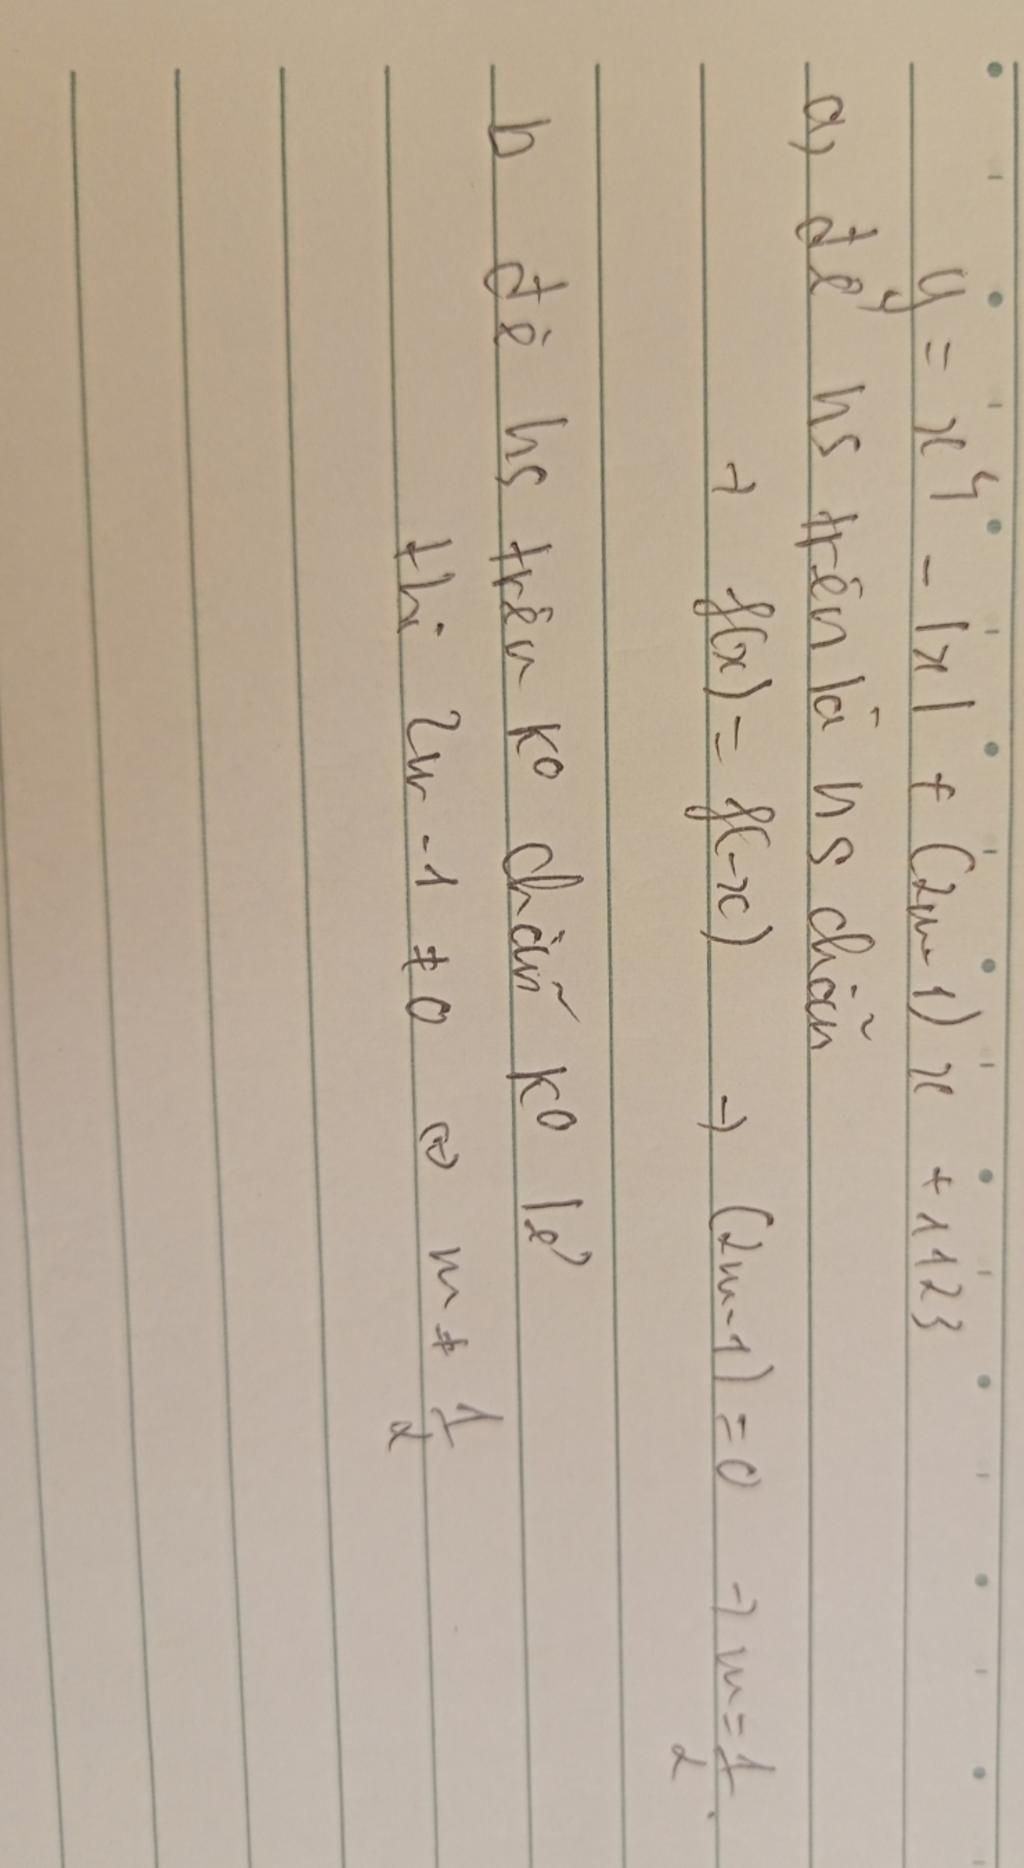 y = x⁴ - |x| + (2m-1) x + 1123
a, để hs trên là hs chẵn
→ f(x) = f(-x) → (2m-1) = 0 → m = 1/2.
b để hs trên k° chẵn k° lẻ
thì 2m -1 ≠ 0 ⇔ m ≠ 1/2